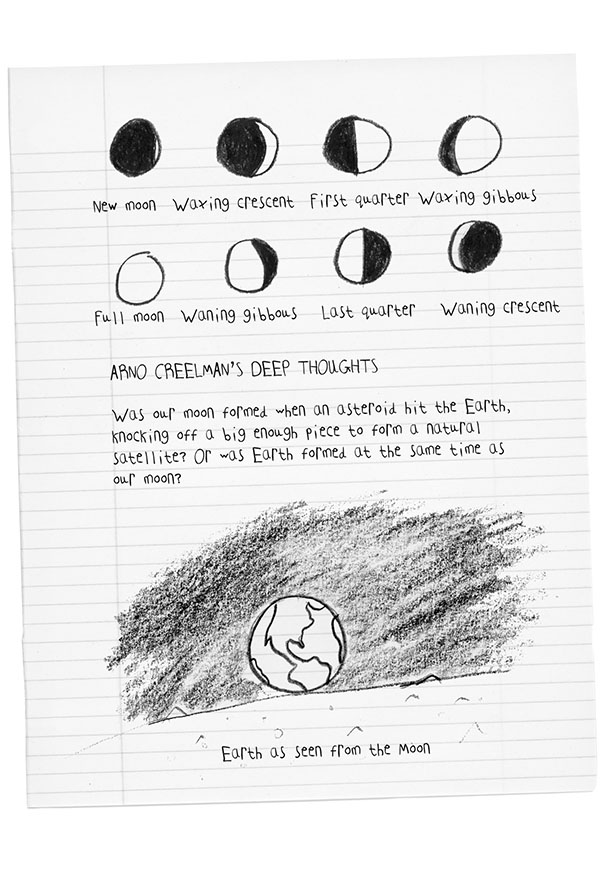 New moon Waxing crescent First quarter Waxing gibbous
Full moon Waning gibbous Last quarter Waning crescent
ARNO CREELMAN'S DEEP THOUGHTS
Was our moon formed when an asteroid hit the Earth,
knocking off a big enough piece to form a natural
satellite? Or was Earth formed at the same time as
our moon?
Earth as seen from the Moon